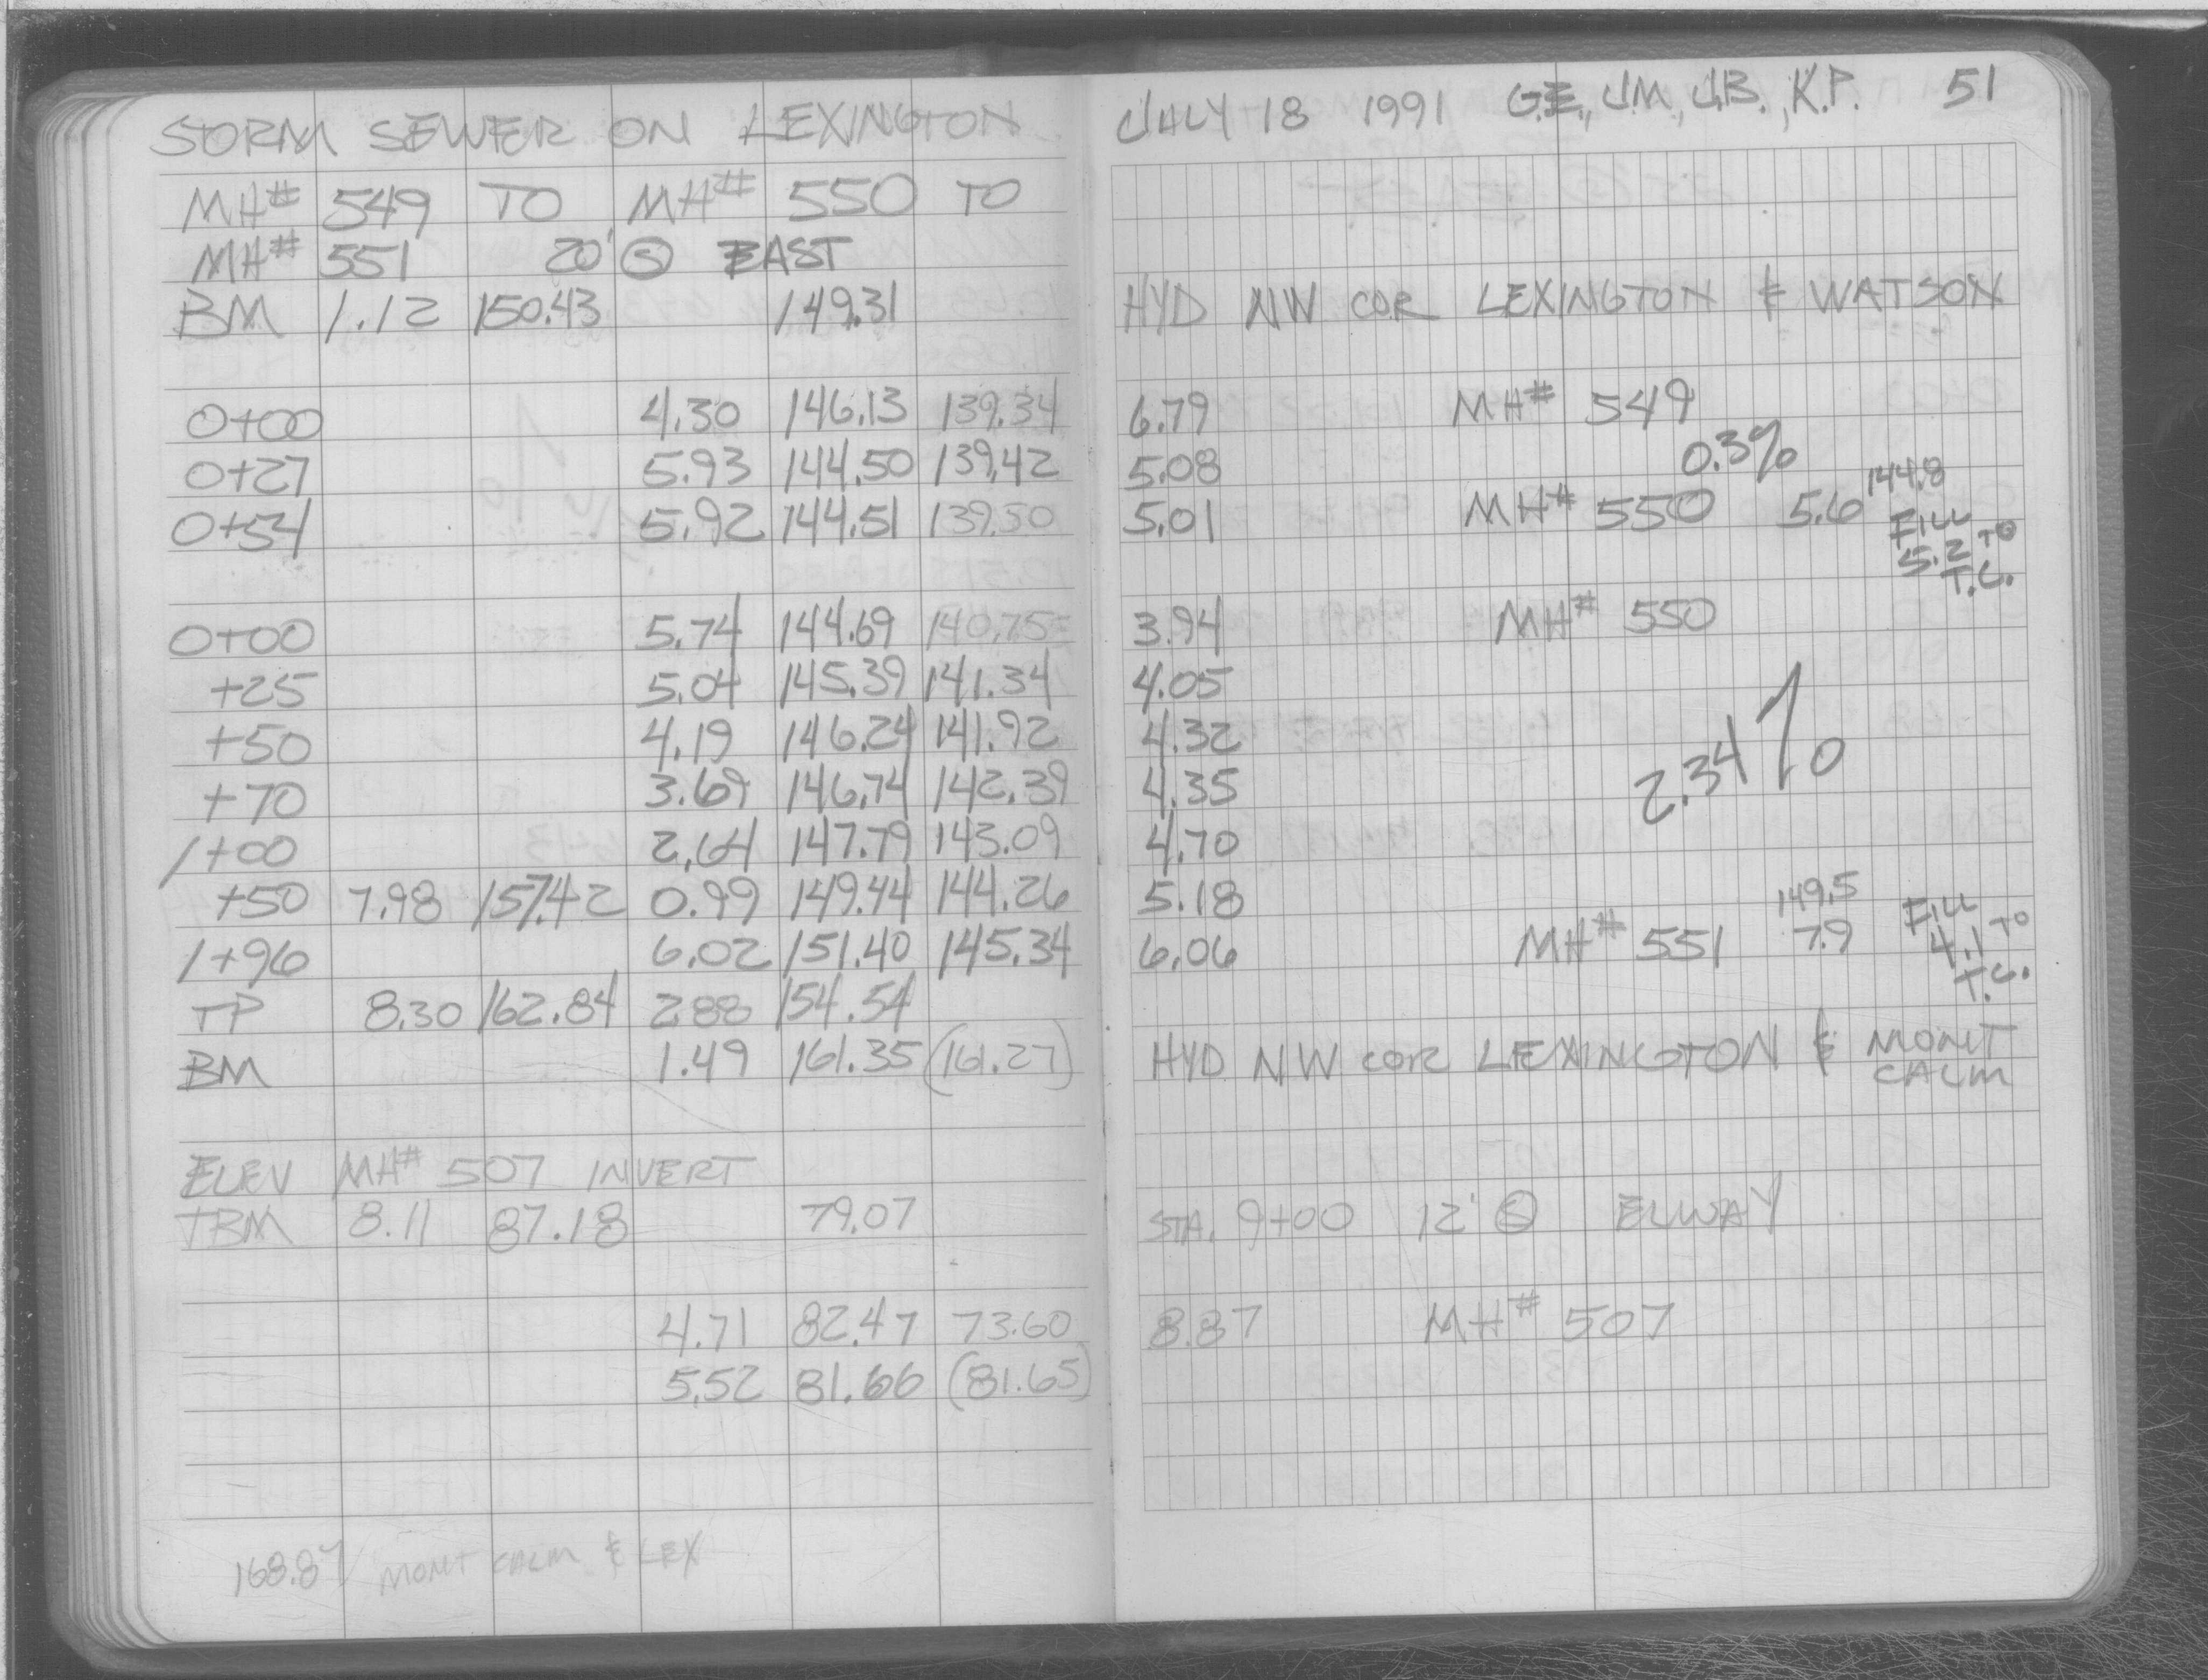 STORM SEWER ON LEXINGTON
MH# 549 TO MH# 550 TO
MH# 551 20' Ⓢ EAST
BM 1.12 150.43 149.31
0+00 4.30 146.13 139.34
0+27 5.93 144.50 139.42
0+54 5.92 144.51 139.50
0+00 5.74 144.69 140.75
+25 5.04 145.39 141.34
+50 4.19 146.24 141.92
+70 3.69 146.74 142.39
1+00 2.64 147.79 143.09
+50 7.98 157.42 0.99 149.44 144.26
1+96 6.02 151.40 145.34
TP 8.30 162.84 2.88 154.54
BM 1.49 161.35 (161.27)
ELEV MH# 507 INVERT
TBM 8.11 87.18 79.07
4.71 82.47 73.60
5.52 81.66 (81.65)
168.87 MONT CALM & LEX
JULY 18 1991 G.E., J.M., J.B., K.P. 51
HYD NW COR LEXINGTON & WATSON
6.79 MH# 549
5.08 0.3%
5.01 MH# 550 5.6 144.8
FILL
5.2 TO
T.C.
3.94 MH# 550
4.05
4.32
4.35 2.34%
4.70
5.18 149.5
6.06 MH# 551 7.9 FILL
4.1 TO
T.C.
HYD NW COR LEXINGTON & MONT
CALM
STA. 9+00 12' Ⓢ ELWAY
8.87 MH# 507